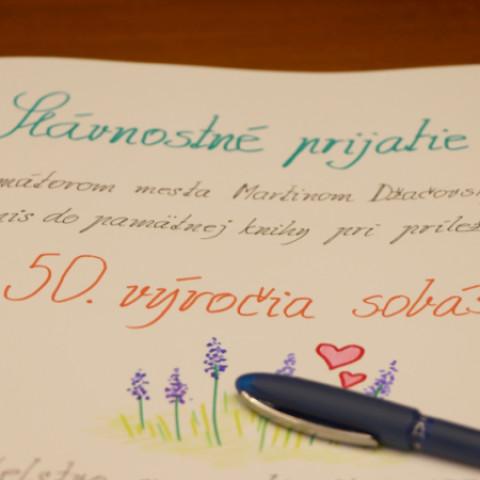 Slávnostné prijatie
mátorom mesta Martinom Džačovsk
nis do pamätnej knihy pri prílež
50. výročia sobáš